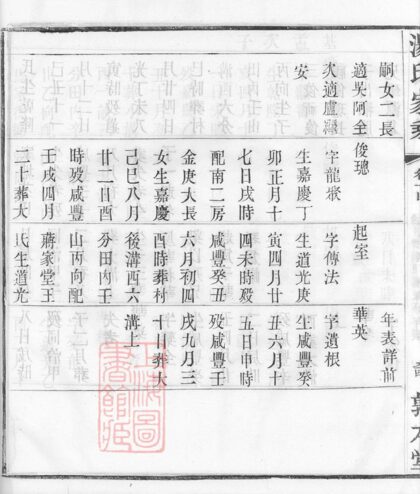 嗣女二長
適吳阿全
次適盧
安
俊璁
字龍
生嘉慶丁
卯正月十
七日戌時
配南二房
金庚大長
女生嘉慶
己巳八月
廿二日酉
時歿咸豐
壬戌四月
二十葬大
起室
字傳法
生道光庚
寅四月廿
四未時歿
咸豐癸丑
六月初四
酉時葬村
後溝西六
分田內壬
山丙向配
蔣家堂王
氏生道光
年表詳前
華英
字道根
生咸豐癸
丑六月十
五日申時
歿咸豐壬
戌九月三
十日葬大
溝上
上海圖
書館藏